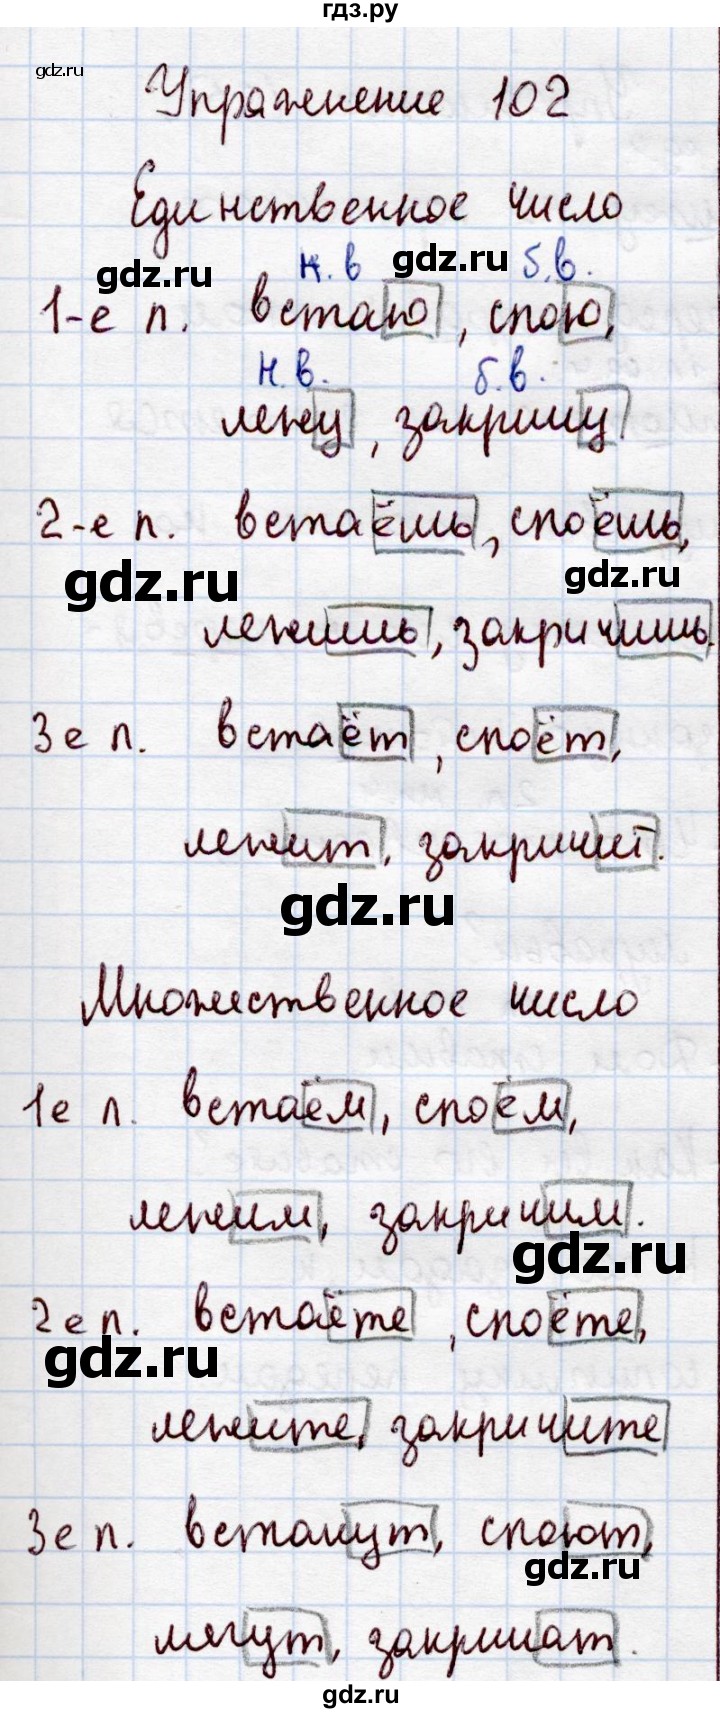 гдз.ру
gdz.ru
Упражнение 102
Единственное число
gdz.ru н.в gdz.ru б.в.
1-е л. встаю, спою,
н.в. б.в.
лежу, закричу
2-е л. встаёшь, споёшь,
gdz.ru gdz.ru
лежишь, закричишь.
3 е л. встаёт, споёт,
лежит, закричит.
gdz.ru
Множественное число
1е л. встаём, споём,
лежим, закричим.
gdz.ru
2 е л. встаёте, споёте,
gdz.ru
лежите, закричите
3 е л. встанут, споют,
gdz.ru
лягут, закричат.
gdz.ru